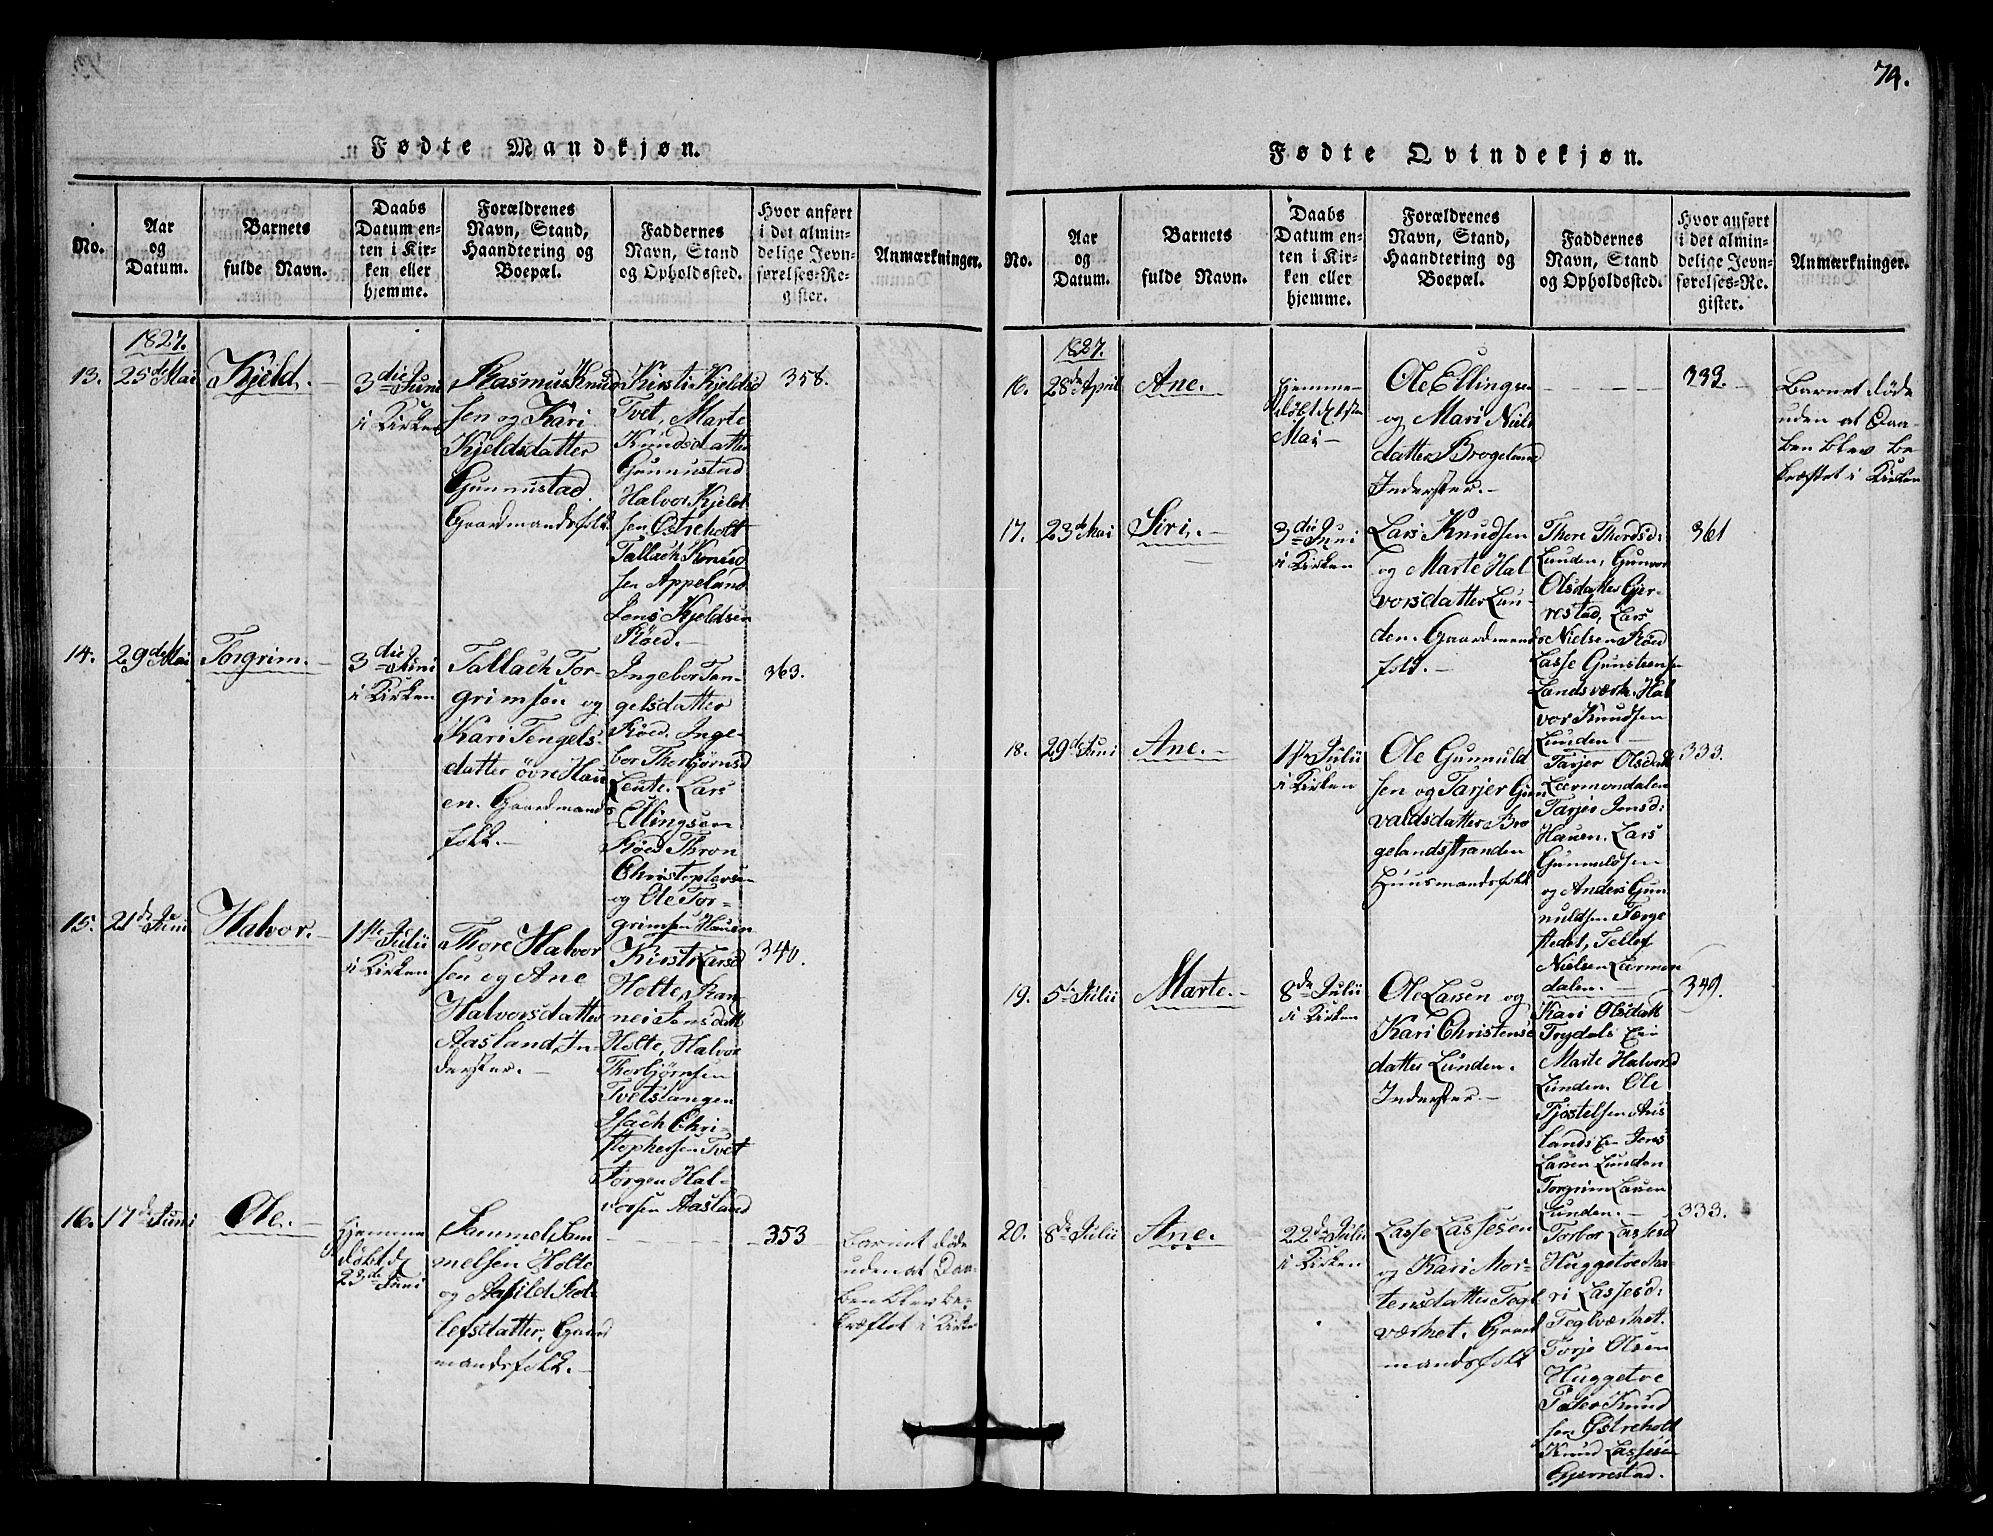 74.
Fødte Mandkjøn.
No.
Aar
og
Datum.
Barnets
fulde Navn.
Daabs
Datum en-
ten i Kir-
ken eller
hjemme.
Forældrenes
Navn, Stand,
Haandtering og
Boepæl.
Faddernes
Navn, Stand
og Opholdssted.
Hvor anført
i det almin-
delige Jevn-
førelses-Re-
gister.
Anmærkninger.
1827.
13.
25de Mai
Kjeld.
3die Juni
i Kirken
Rasmus Knud
sen og Kari
Kjeldsdatter
Gunnustad.
Gaardmandsfolk.
Kirsti Kjeldsd
Tvet, Marte
Knudsdatter
Gunnustad
Halvor Kjeld
sen Østreholt
Tallach Knud
sen Appeland
Jens Kjeldsen
Røed.
358.
14.
29de Mai
Torgrim.
3die Juni
i Kirken
Tallach Tor-
grimsen og
Kari Tengels-
datter øvre Hau
en. Gaardmands
folk.
Ingebor Ten-
gelsdatter
Røed. Inge-
bor Thorbjørnsd
Leute. Lars
Ellingsen
Røed Thron
Christophersen
og Ole Tor-
grimsen Hauen
363.
15.
21de Juni
Halvor.
1ste Julii
i Kirken
Thore Halvor
sen og Ane
Halvorsdatter
Aasland, In-
derster.
Kirsti Larsd
Holte, Ran-
nei Jensdatt
Holte, Halvor
Thorbjørnsen
Tvetstangen
Isach Chri-
stophersen Tvet
Torgen Hal-
vorsen Aasland
340.
16.
17de Juni
Ole.
Hjemme
døbt d
23de Juni
Sammel Sam
melsen Holte
og Aasild Rol-
lefsdatter, Gaard
mandsfolk.
353
Barnet døde
uden at Daa-
ben blev be-
kræftet i Kirken
Fødte Qvindekjøn.
No.
Aar
og
Datum.
Barnets
fulde Navn.
Daabs
Datum en-
ten i Kir-
ken eller
hjemme.
Forældrenes
Navn, Stand,
Haandtering og
Boepæl.
Faddernes
Navn, Stand
og Opholdssted.
Hvor anført
i det almin-
delige Jevn-
førelses-Re-
gister.
Anmærkninger.
1827.
16.
28de April
Ane.
Hjemme-
døbt d 1ste
Mai
Ole Ellingsen
og Mari Niels
datter Brogeland
Inderster.
333.
Barnet døde
uden at Daa-
ben blev be
kræftet i Kirken
17.
23de Mai
Siri.
3die Juni
i Kirken
Lars Knudsen
og Marte Hal-
vorsdatter Lun-
den. Gaardmands
folk.
Thore Thordsd:
Lunden, Gunvor
Olsdatter Gjer-
restad, Lars
Nielsen Røed
Lasse Gunsteensen
Landsværk. Hal
vor Knudsen
Lunden.
361
18.
29de Juni
Ane.
1ste Julii
i Kirken
Ole Gunnuld
sen og Tarjer Gun
valdsdatter Bro
gelandsstranden
Huusmandsfolk
Tarjer Olsdatt
Lærmondalen
Tarjer Jensd:
Hauen, Lars
Gunnuldsen
og Anders Gun
nuldsen Færge
stedet, Tellef
Nielsen Lærmon
dalen.
333.
19.
5te Julii
Marte.
8de Julii
i Kirken
Ole Larsen og
Kari Christens
datter Lunden.
Inderster.
Kari Olsdatt
Trydals Eie
Marte Halvorsd
Lunden. Ole
Tjøstelsen Aas
lands Eie Jens
Larsen Lunden
Torgrim Larsen
Lunden.
349.
20.
8de Julii
Ane.
22de Julii
i Kirken
Lasse Lassesen
og Kari Mor-
tensdatter Tegl
værket. Gaard
mandsfolk
Torbor Lassesd
Huggetve Ma-
ri Lassesd:
Teglværket.
Torje Olsen
Huggetve
Peter Knud
sen Østreholt
Knud Lassesen
Gjerrestad.
333.